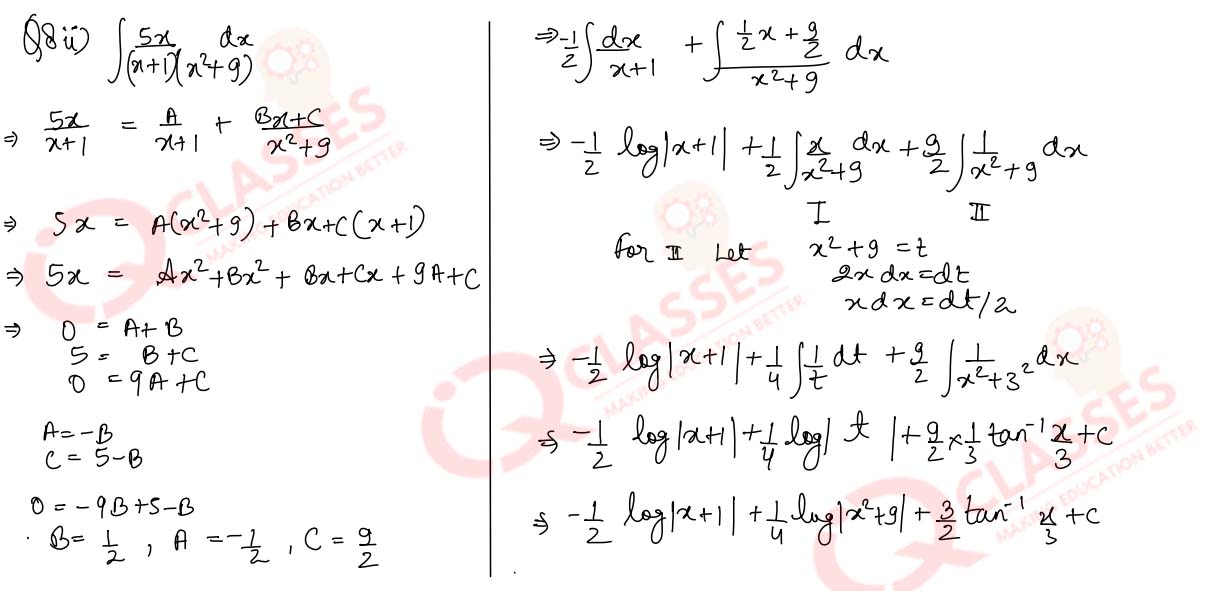 Q8 ii) ∫ 5x/((x+1)(x²+9)) dx
⇒ 5x/(x+1) = A/(x+1) + (Bx+C)/(x²+9)
⇒ 5x = A(x²+9) + Bx+C(x+1)
⇒ 5x = Ax²+Bx² + Bx+Cx + 9A+C
⇒ 0 = A+B
5 = B+C
0 = 9A+C
A = -B
C = 5-B
0 = -9B+5-B
B = 1/2 , A = -1/2 , C = 9/2
⇒ -1/2 ∫ dx/(x+1) + ∫ (1/2 x + 9/2)/(x²+9) dx
⇒ -1/2 log|x+1| + 1/2 ∫ x/(x²+9) dx + 9/2 ∫ 1/(x²+9) dx
I II
For II Let x²+9 = t
2x dx = dt
x dx = dt/2
⇒ -1/2 log|x+1| + 1/4 ∫ 1/t dt + 9/2 ∫ 1/(x²+3²) dx
⇒ -1/2 log|x+1| + 1/4 log| t | + 9/2 × 1/3 tan⁻¹ x/3 + c
⇒ -1/2 log|x+1| + 1/4 log|x²+9| + 3/2 tan⁻¹ x/3 + c
IQ CLASSES
MAKING EDUCATION BETTER
IQ CLASSES
MAKING EDUCATION BETTER
IQ CLASSES
MAKING EDUCATION BETTER